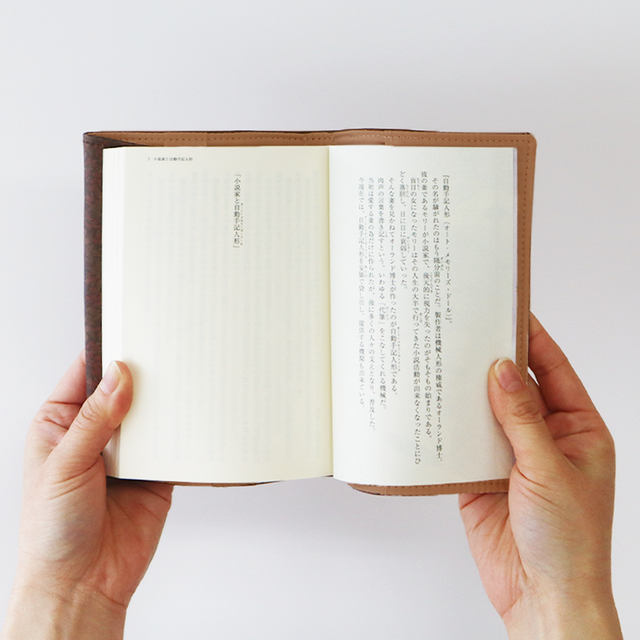 「自動手記人形（オート・メモリーズ・ドール）」。
その名が騒がれたのはもう随分前のことだ。製作者は機械人形の権威であるオーランド博士。
彼の妻であるモリーが小説家で、後天的に視力を失ったのがそもそもの始まりである。
盲目の女になったモリーはその人生の大半で行ってきた小説活動が出来なくなったことにひ
どく落胆し、日に日に衰弱していった。
そんな妻を見かねてオーランド博士が作ったのが自動手記人形である。
肉声の言葉を書き記すという、いわゆる「代筆」をこなしてくれる機械だ。
当初は愛する妻の為だけに作られたが、後に多くの人々の支えとなり、普及した。
今現在では、自動手記人形を安価で貸し出し、提供する機関も出来ている。
「小説家と自動手記人形」
7 小説家と自動手記人形